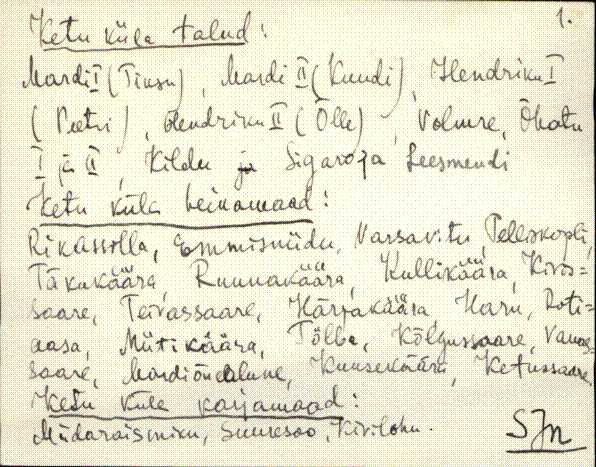 1.
Ketu küla talud:
Mardi I (Tinsu), Mardi II (Kuudi), Hendriku I
(Peetri), Hendriku II (Õlle), Volmre, Õhatu
I ja II, Kildu ja Sigaroja Leesmendi
Ketu küla heinamaad:
Rikassilla, Emmisniidu, Varsavitu, Telliskopli,
Täkukäära, Ruunakäära, Kullikäära, Kivis=
saare, Teivassaare, Härjakäära, Haru, Roti=
aasa, Mütikäära, Tõlba, Kõlgussaare, Vanas=
saare, Mardiõuealune, Kuusekääru, Ketussaare.
Ketu küla karjamaad:
Müdaraismiku, Suuresoo, Kivilohu.